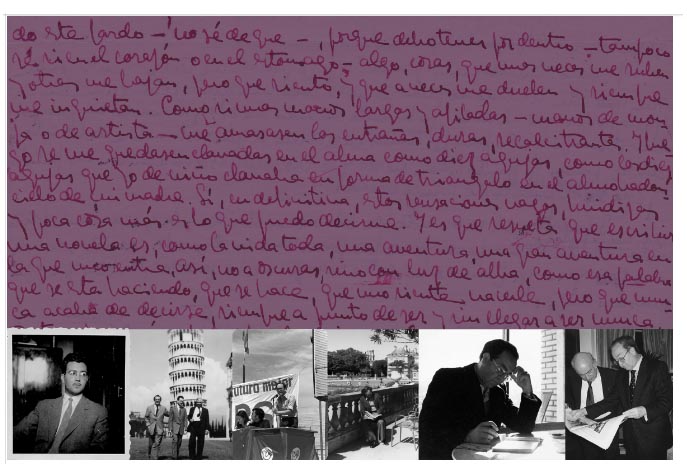 do este fardo – no sé de que –, porque debo tener por dentro – tampoco
sé si en el corazón o en el estomago – algo, cosas, que unas veces me suben
y otras me bajan, pero que siento, y que a veces me duelen y siempre
me inquietan. Como si unas manos largas y afiladas – manos de mon
ja o de artista – me amasasen las entrañas, duras, recalcitrantes. Y lue
go se me quedasen clavadas en el alma como diez agujas, como las diez
agujas que yo de niño clavaba en forma de triangulo en el almohadon
cielo de mi madre. Sí, en definitiva, estas sensaciones vagas,
y poca cosa más es lo que puedo decirme. Y es que resulta que escribir
una novela es, como la vida toda, una aventura, una gran aventura en
la que uno entra, así, no a oscuras, sino con luz de alba, como esa palabra
que se esta haciendo, que se hace, que uno siente nacerle, pero que nun
ca acaba de decirse, siempre a punto de ser y sin llegar a ser nunca
futuro mejor